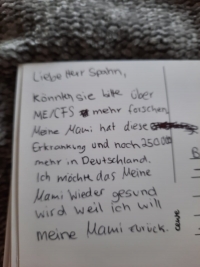 Liebe Herr Spahn,
Könnten sie bitte über
ME/CFS mehr forschen
Meine Mami hat diese
Erkrankung und noch 250.000
mehr in Deutschland.
Ich möchte das Meine
Mami Wieder gesund
wird weil ich will
meine Mami zurück.